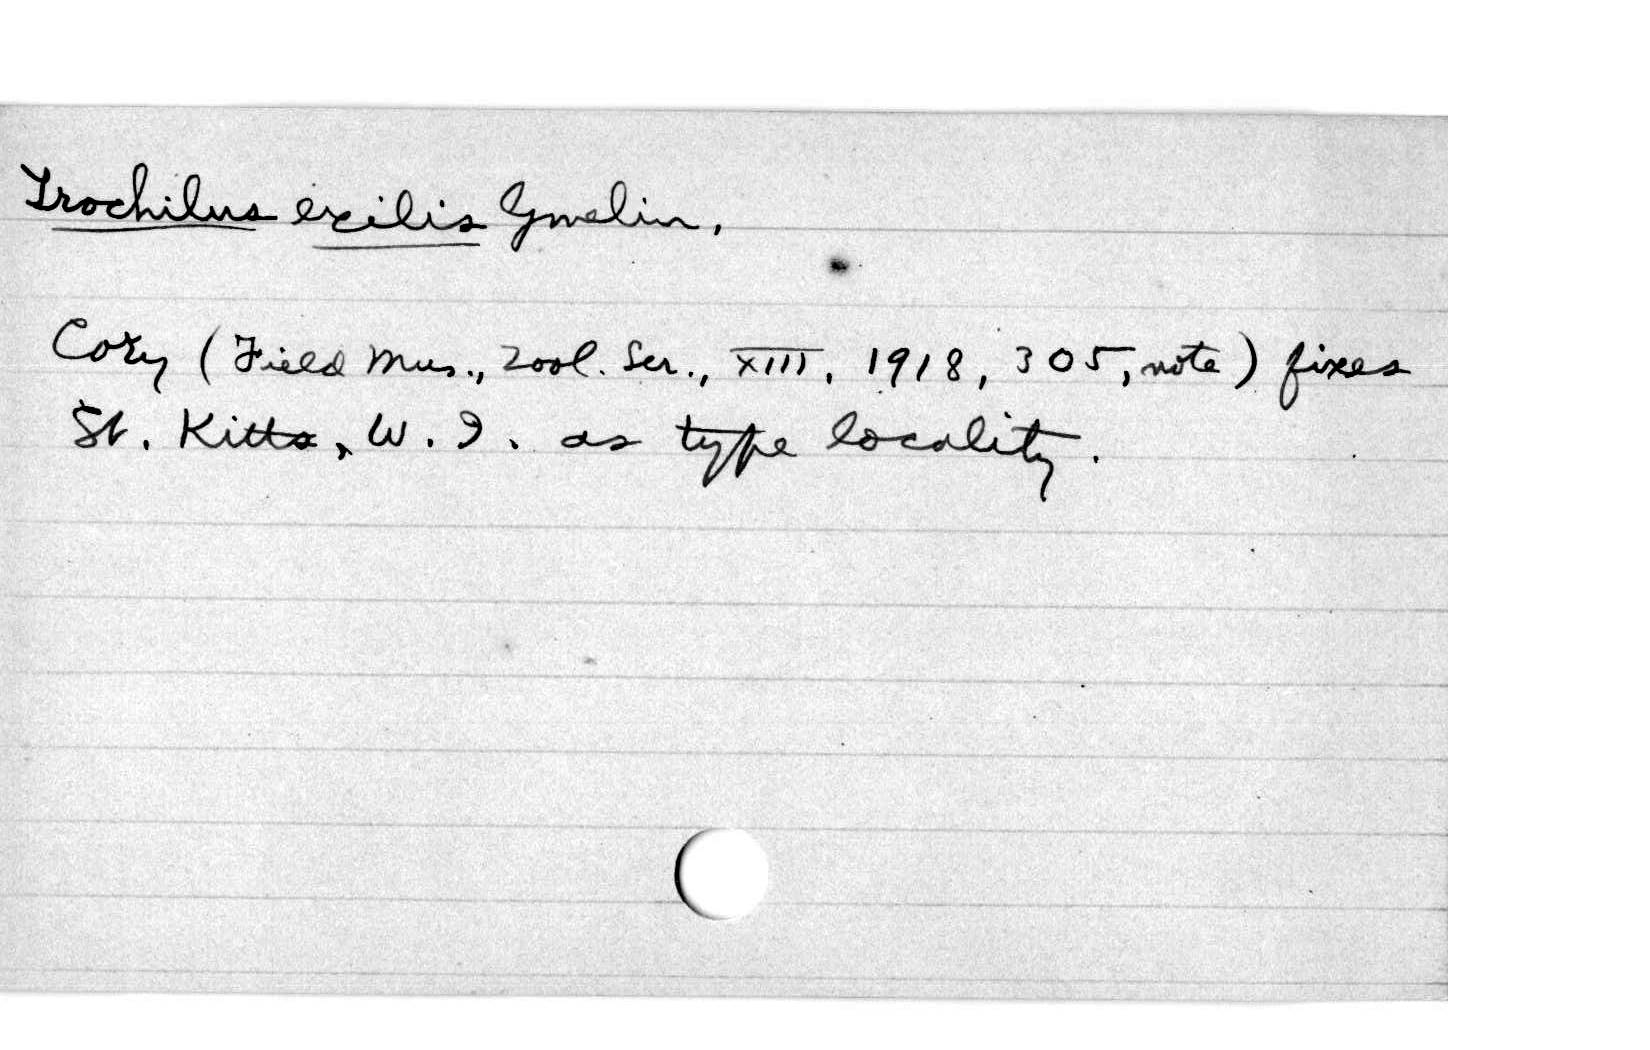 Trochilus exilis Gmelin.
Cory (Field Mus., Zool. Ser., XIII, 1918, 305, note) fixes
St. Kitts, W. I. as type locality.